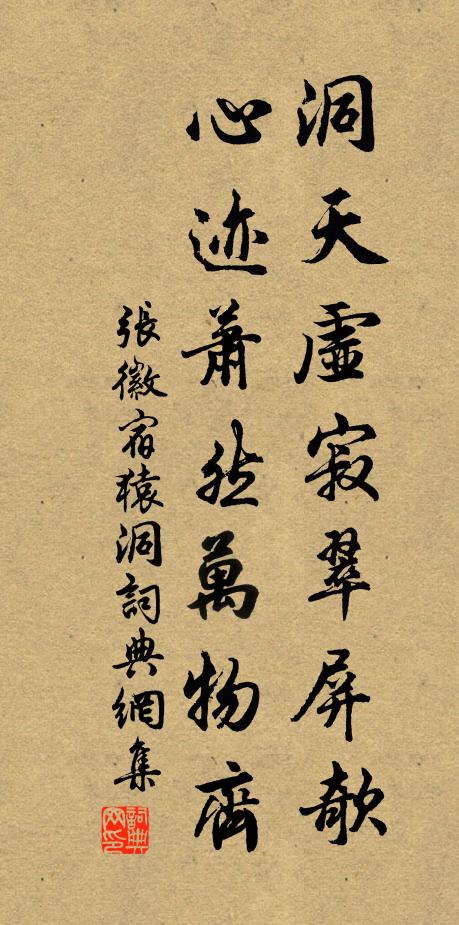 洞天虛寂翠屏欹
心迹蕭然萬物齊
張徽宿猿洞詞典網集
詞典网印